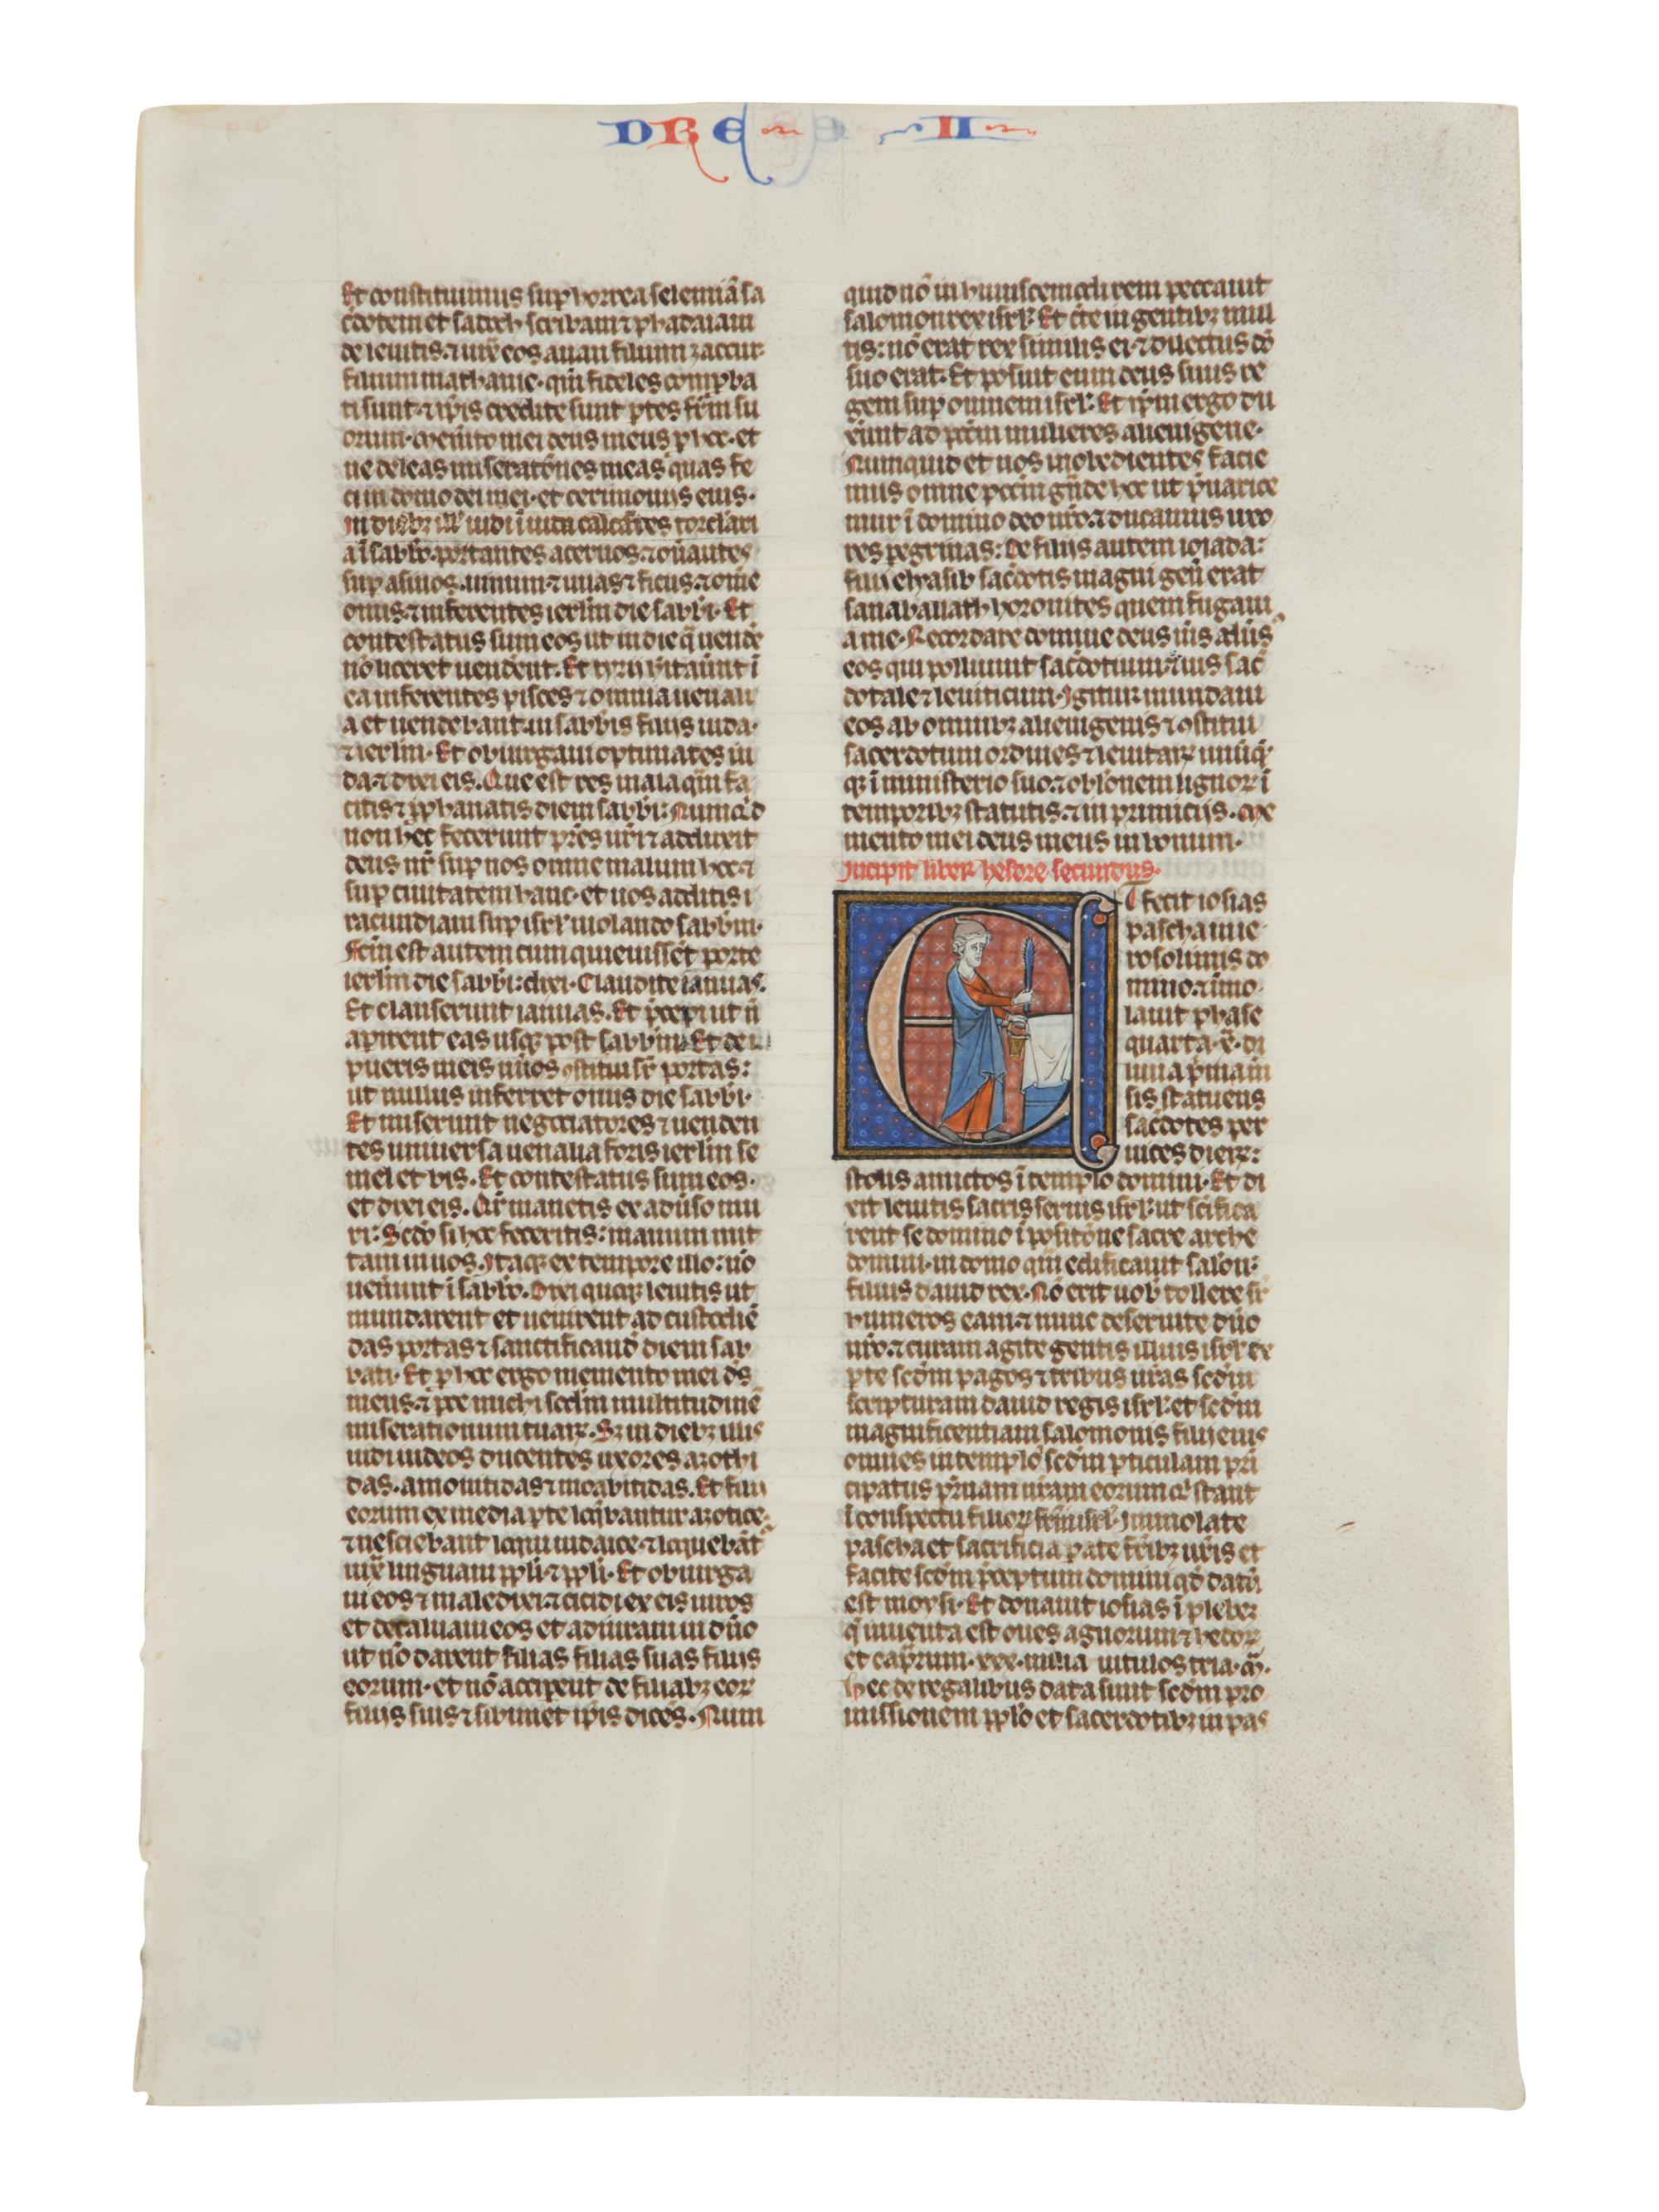 DRE II
Et constituimus sup horrea selemiã sa
c̃dotem et sadoch scribam ⁊ phadaiam
de leuitis ⁊ iux̃ eos anan filium zaccur
filium mathanie · qm̃ fideles comp̃ba
ti sunt ⁊ ip̃is credite sunt p̃tes fr̃m su
orum · Mem̃to mei deus meus p̱ hoc · et
ne deleas miseratõnes meas quas fe
ci in domo dei mei · et cerimoniis eius ·
In diebꝫ ill̃ uidi ĩ iuda calcãtes torclaria
ĩ sabb̃o · portantes aceruos ⁊ oñantes
sup asinos · uinum ⁊ uuas ⁊ ficus ⁊ om̃e
onus ⁊ inferentes ierl̃m die sabb̃i · Et
contestatus sum eos ut in die q̃ uendẽ
nõ liceret uendẽnt · Et tyrii hitãunt ĩ
ea inferentes pisces ⁊ omnia uenali
a et uendebant in sabb̃is filiis iuda ·
⁊ ierl̃m · Et obiurgaui optimates iu
da ⁊ dixi eis · Que est res mala q̃m fa
citis ⁊ p̃phanatis diem sabb̃i: Numq̃d
non hec fecerunt p̃res ur̃i ⁊ adduxit
deus nr̃ sup nos omne malum hoc ⁊
sup ciuitatem hanc · et uos additis i
racundiam sup isrl̃ uiolando sabb̃m ·
Fc̃m est autem cum quieuissẽt porte
ierl̃m die sabb̃i: dixi · Claudite ianuas ·
Et clauserunt ianuas · Et p̃cepi ut ñ
apirent eas usqꝫ post sabb̃m · Et de
pueris meis ñios ꝯstitui sr̃ portas:
ut nullus inferret onus die sabb̃i ·
Et miserunt negociatores ⁊ uenden
tes uniuersa uenalia foris ierl̃m se
mel et bis · Et contestatus sum eos ·
et dixi eis · Qr̃ manetis ex adũso mu
ri: Sc̃do si hoc feceritis: manum mit
tam in uos · Itaqꝫ ex tempore illo: nõ
ueñunt ĩ sabb̃o · Dixi quoqꝫ leuitis ut
mundarent et uenirent ad custodiẽ
das portas ⁊ sanctificand̃ diem sab
bati · Et p̱ hoc ergo memento mei d̃s
meus ⁊ p̃ce michi scd̃m multitudinẽ
miserationum tuarꝫ · Sꝫ in diebꝫ illis
uidi iudeos ducentes uxores azothi
das · amonitidas ⁊ moabitidas · Et filii
eorum ex media p̱te loq̃bantur azotice
⁊ nesciebant loqui iudaice ⁊ loquebãt
iux̃ linguam pp̃li ⁊ pp̃li · Et obiurga
ui eos ⁊ maledixi ⁊ cicidi ex eis uiros
et decaluaui eos et adiuraui in dño
ut nõ darent filias filias suas filiis
eorum · et nõ acciperent de filiabꝫ eor̃
filiis suis ⁊ sibimet ip̃is dicẽs · Num
quid nõ in huiuscemodi rem peccauit
salomon rex isrl̃: Et c̃te in gentibꝫ mul
tis: nõ erat rex similis ei ⁊ dilectus dõ
suo erat · Et posuit eum deus suus re
gem sup omnem isrl̃: Et ip̃m ergo du
xẽunt ad pc̃m mulieres alienigene ·
Numquid et nos inobedientes facie
mus omne pc̃m gñde hoc ut p̃uarice
mur ĩ domino deo nr̃o ⁊ ducamus uxo
res pegrinas: De filiis autem ioiada:
filii eliasib sac̃dotis magni geñ erat
sanaballath horonites quem fugaui
a me · Recordare domine deus ñs aliũs
eos qui polluunt sac̃dotium ⁊ ius sac̃
dotale ⁊ leuiticum · Igitur mundaui
eos ab omnibꝫ alienigenis ⁊ ꝯstitui
sacerdotum ordines ⁊ leuitarꝫ unũq̃
qꝫ ĩ ministerio suo ⁊ obl̃onem lignorꝫ ĩ
temporibꝫ statutis ⁊ in primiciis · Me
mento mei deus meus in bonum ·
Incipit liber hesdre secundus ·
ET fecit iosias
pascha in ie
rosolimis do
mino ⁊ ĩmo
lauit phase
quarta · x̃ · di
luna p̃mi m̃
sis statuens
sac̃dotes per
uices dierꝫ:
stolis amictos ĩ templo domini · Et di
xit leuitis sacris seruis isrl̃: ut sc̃ifica
rent se domino ĩ positõne sacre arche
domini · in domo qm̃ edificauit salõn:
filius dauid rex · Nõ erit uob̃ tollere sr̃
humeros eam ⁊ nunc deseruite dño
nr̃o ⁊ curam agite gentis illius isrl̃ ex
p̱te scd̃m pagos ⁊ tribus ur̃as scd̃m
scripturam dauid regis isrl̃: et scd̃m
magnificentiam salomonis filii eius
omnes in templo scd̃m p̱ticulam pri
cipatus p̃nam ur̃am eorum q̃ stant
ĩ conspectu filiorꝫ fr̃m isrl̃ · Immolate
pascha et sacrificia pate fr̃ibꝫ ur̃is et
facite scd̃m p̃ceptum domini qd̃ datũ
est moysi · Et donauit iosias ĩ plebeꝫ
q̃ inuenta est oues agnorum ⁊ hedorꝫ
et cap̃rum · xxx · milia uitulos tria · m̃ ·
Hec de regalibus data sunt scd̃m pro
missionem pp̃lo et sacerdotibꝫ in pas